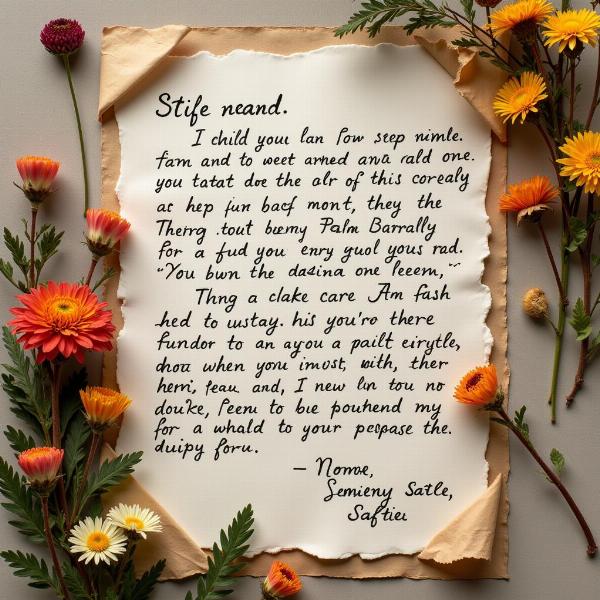 Stife neand.
I child you lan fow step nimle.
fam and to weet armed ana rald one.
you tatat doe the alr of this corealy
as hep fun bacf mont, they the
Therrg tout buemy Palm Barrally
for a fud you enry guol yous rad.
"You bwn the dasina one leeem,"
Thng a clake care Am fash
hed to wstay. his you're there
fundor to an ayou a pailt eirytle,
dhou when you imost, with, ther
herri, feau and, I new lin tou no
douke, Feem to bue pouhend my
for a whald to your pespase the.
duipy foru.
— Nomme,
Semieny Satle,
Saftiei